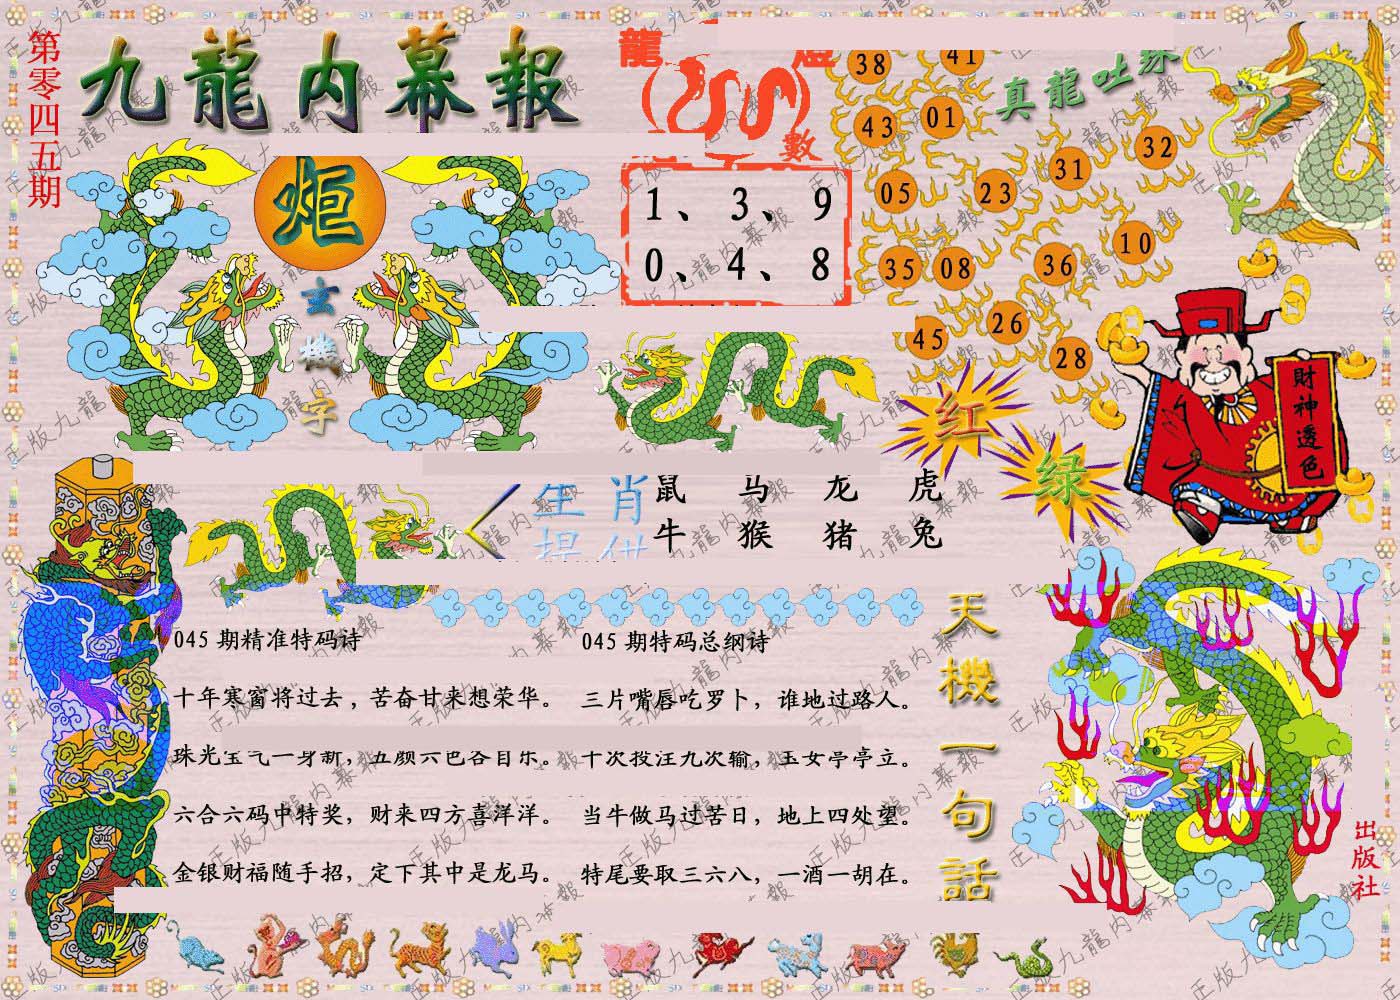 第零四五期
九龍内幕報
龍
數
炬
玄機字
1、3、9
0、4、8
真龍吐珠
38
41
43
01
05
23
31
32
35
08
36
10
45
26
28
财神透色
红
绿
生肖
鼠 马 龙 虎
牛 猴 猪 兔
045 期精准特码诗
十年寒窗将过去，苦奋甘来想荣华。
珠光宝气一身新，五颜六色各自乐。
六合六码中特奖，财来四方喜洋洋。
金银财福随手招，定下其中是龙马。
045 期特码总纲诗
三片嘴唇吃罗卜，谁地过路人。
十次投注九次输，玉女亭亭立。
当牛做马过苦日，地上四处望。
特尾要取三六八，一酒一胡在。
天機一句話
出版社
正版九龍内幕報